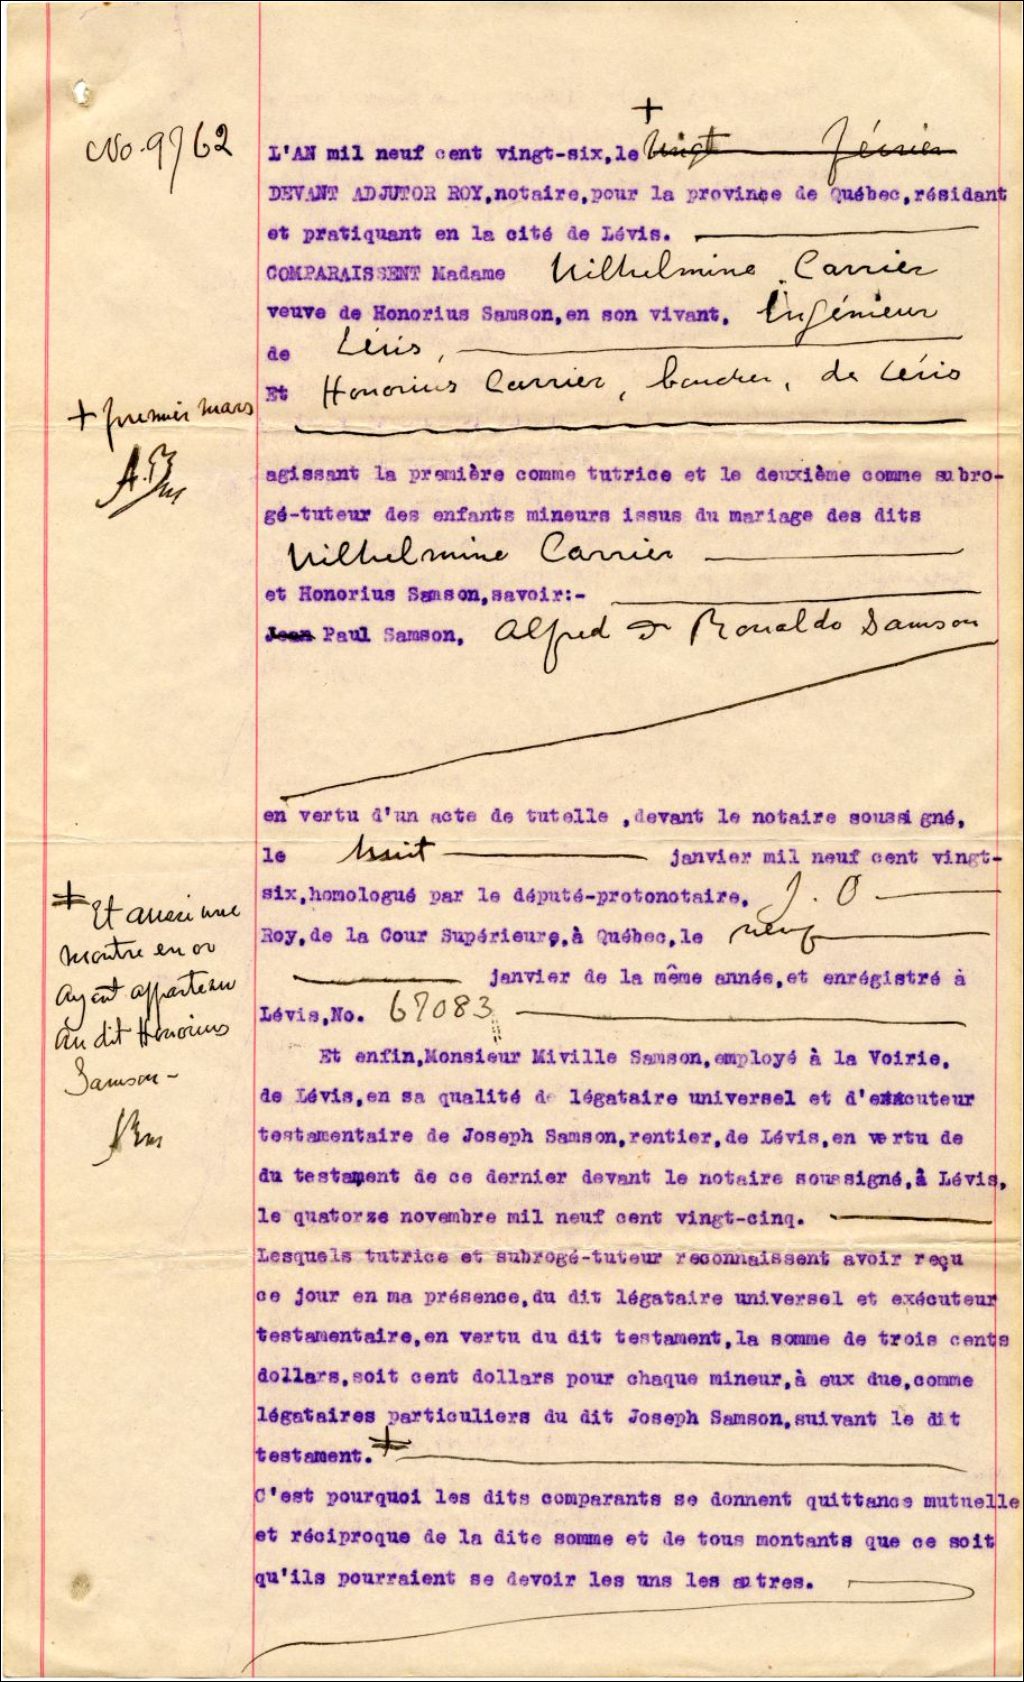 +
No. 9762
L'AN mil neuf cent vingt-six, le vingt février
DEVANT ADJUTOR ROY, notaire, pour la province de Québec, résidant
et pratiquant en la cité de Lévis.
COMPARAISSENT Madame Wilhelmine Carrier
veuve de Honorius Samson, en son vivant, Ingénieur
de Lévis,
Et Honorius Carrier, boucher, de Lévis
+ premier mars
agissant la première comme tutrice et le deuxième comme subro-
gé-tuteur des enfants mineurs issus du mariage des dits
Wilhelmine Carrier
et Honorius Samson, savoir:-
Jean Paul Samson, Alfred & Ronaldo Samson
en vertu d'un acte de tutelle , devant le notaire soussi gné,
le huit janvier mil neuf cent vingt-
six, homologué par le député-protonotaire, J. O
Roy, de la Cour Supérieure, à Québec, le neuf
janvier de la même année, et enrégistré à
Lévis, No. 67083
‡ Et aussi une
montre en or
ayant appartenu
au dit Honorius
Samson -
Et enfin, Monsieur Miville Samson, employé à la Voirie,
de Lévis, en sa qualité de légataire universel et d'exécuteur
testamentaire de Joseph Samson, rentier, de Lévis, en vertu de
du testament de ce dernier devant le notaire soussigné, à Lévis,
le quatorze novembre mil neuf cent vingt-cinq.
Lesquels tutrice et subrogé-tuteur reconnaissent avoir reçu
ce jour en ma présence, du dit légataire universel et exécuteur
testamentaire, en vertu du dit testament, la somme de trois cents
dollars, soit cent dollars pour chaque mineur, à eux due, comme
légataires particuliers du dit Joseph Samson, suivant le dit
testament. ‡
C'est pourquoi les dits comparants se donnent quittance mutuelle
et réciproque de la dite somme et de tous montants que ce soit
qu'ils pourraient se devoir les uns les autres.